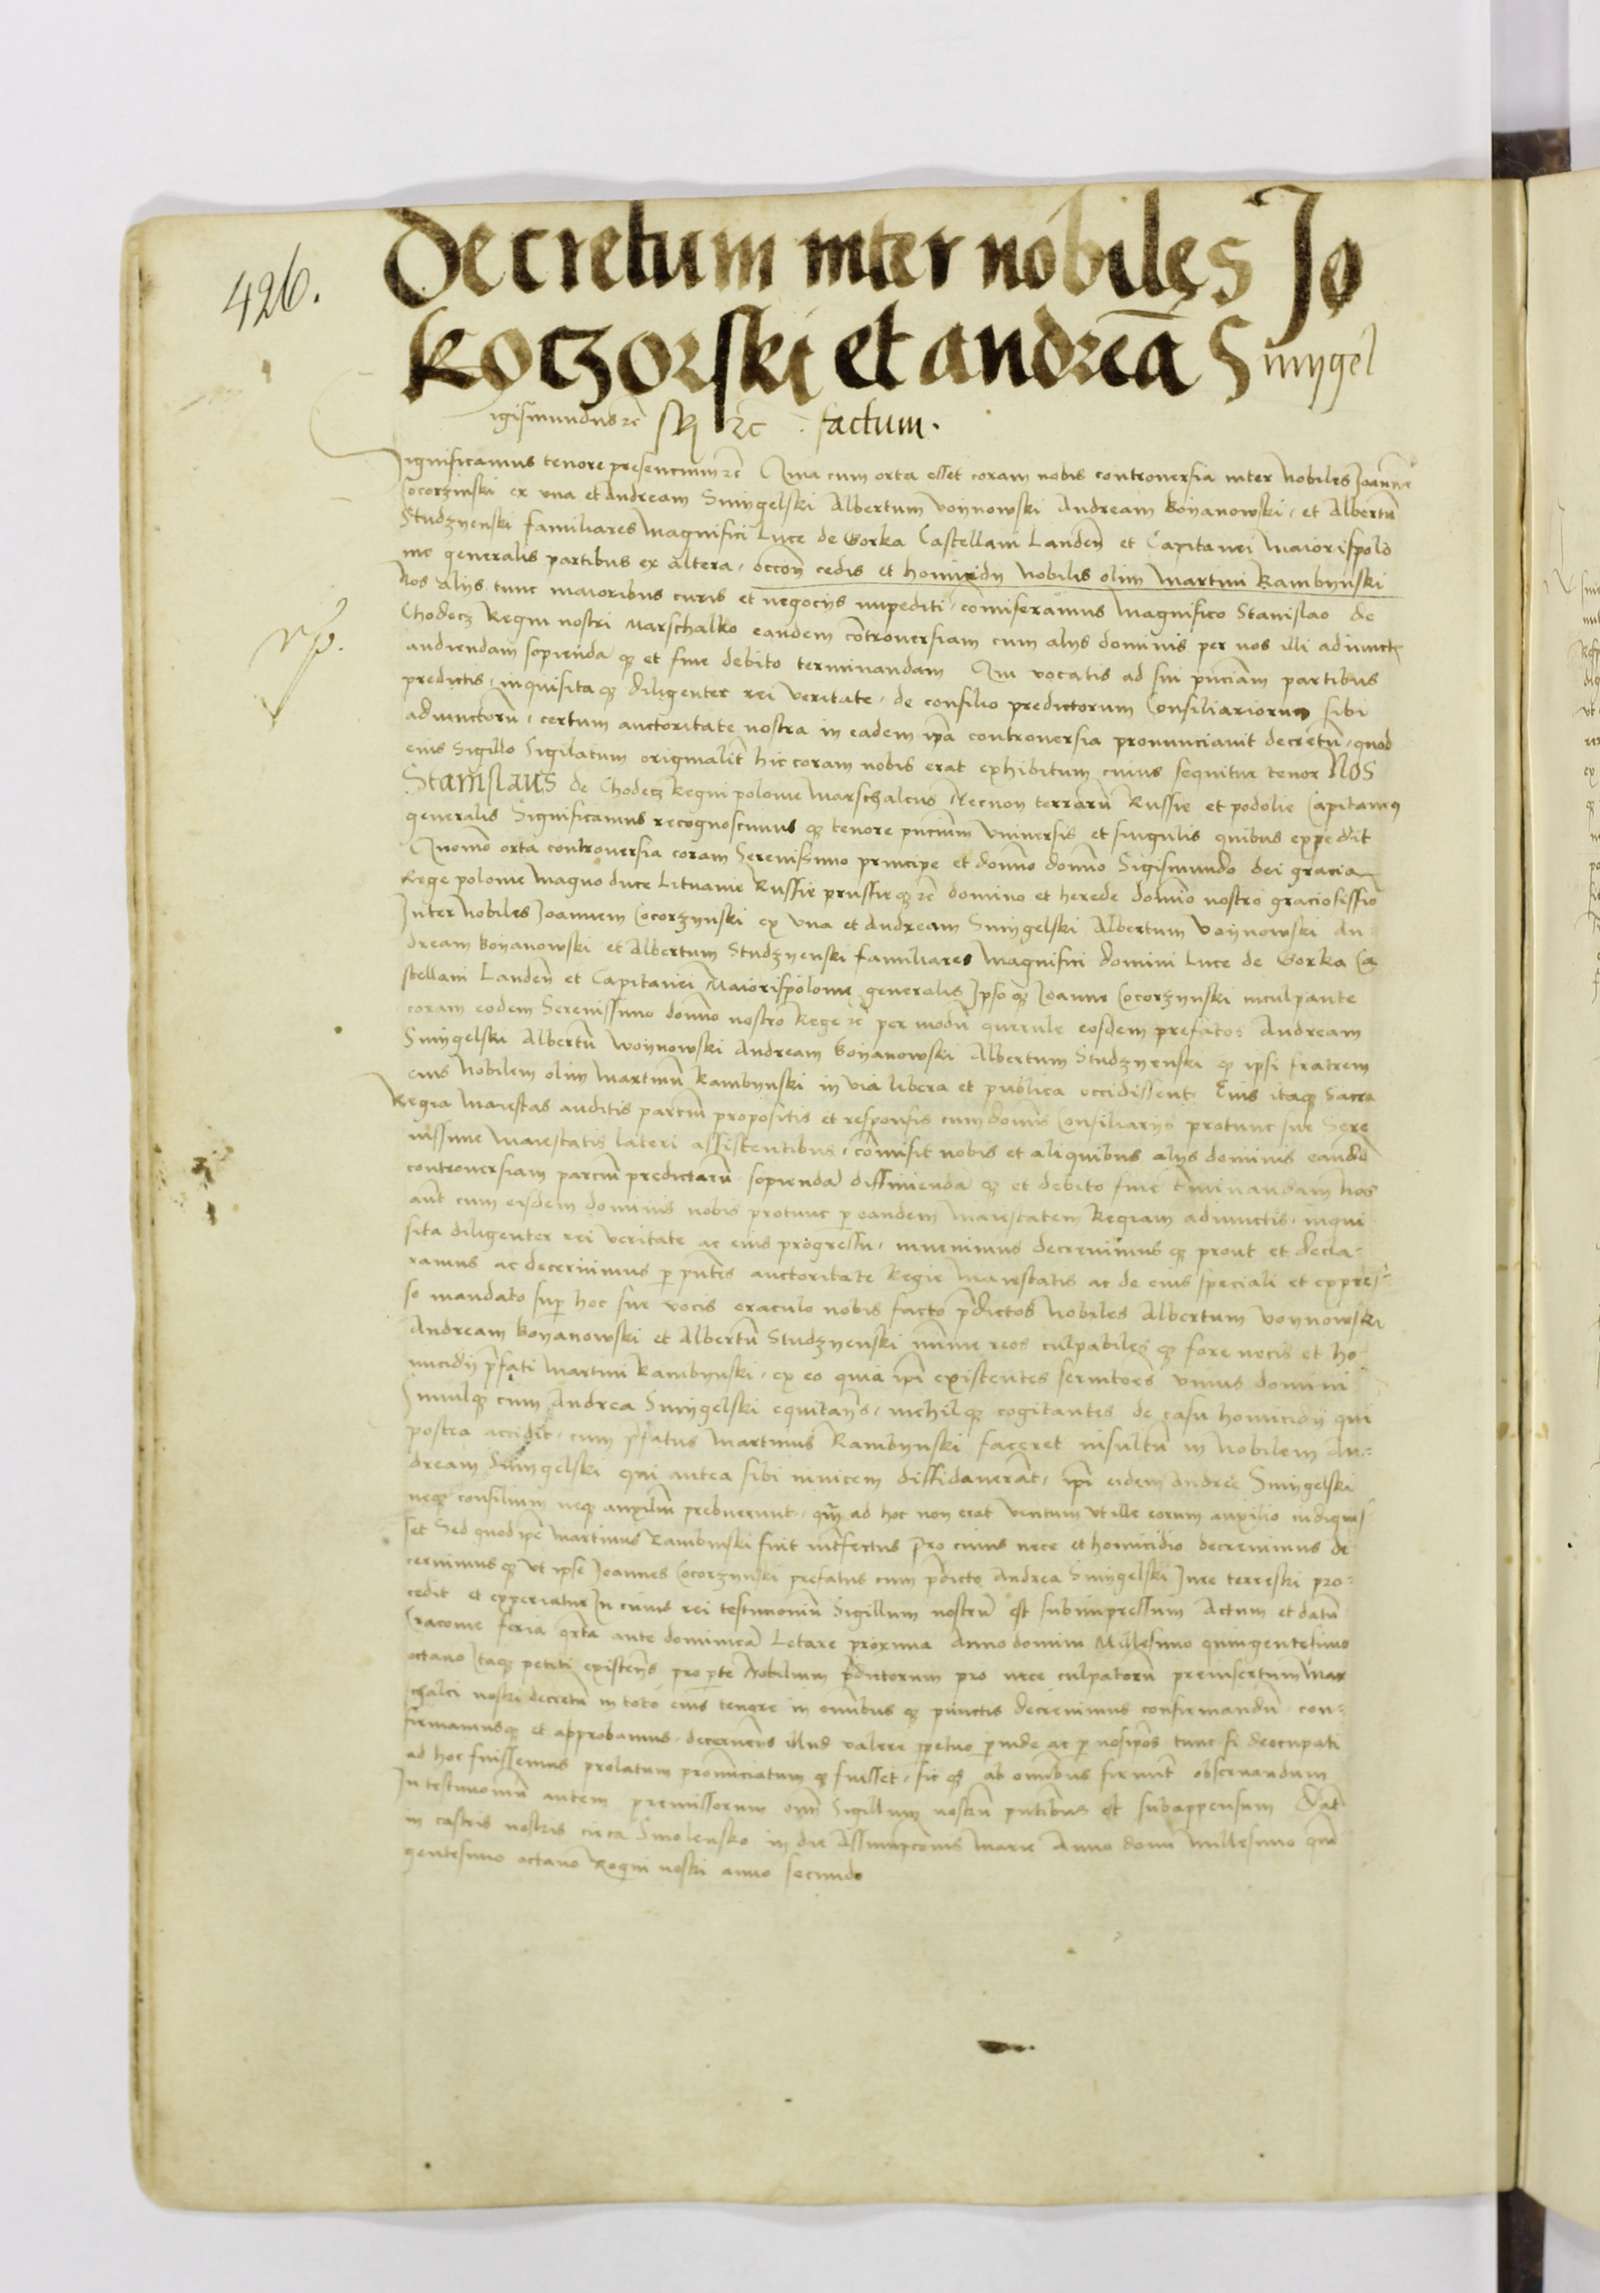 426.
Decretum inter nobiles Jo
Koczorski et andreā Smygel
igismundus ꝛc̄ skj ꝛc factum.
Significamus tenore presencium ꝛc̄ Quia cum orta esset coram nobis controuersia inter Nobiles Joannē
Cocorzinski ex vna et Andream Smygelski Albertum Voynowski Andream Boyanowski, et Albertū
Studzyenski familiares Magnifici Luce de Gorka Castellani Landeñ et Capitanei Maiorispolo
nie generalis partibus ex altera, occoñ cedis et homicidij Nobilis olim Martini Rambynski
Nos alijs tunc maioribus curis et negocijs impediti, comiseramus Magnifico Stanislao de
Chodecz Regni nostri Marschalko eandem cōtrouersiam cum alijs dominis per nos illi adiunctis
audiendam sopienda qꝫ et fine debito terminandam Qui vocatis ad sui pñciam partibus
predictis, inquisita qꝫ diligenter rei veritate, de consilio predictorum Consiliariorum sibi
adiunctorū, certum auctoritate nostra in eadem ip̄a controuersia pronunciauit decretū, quod
eius Sigillo Sigilatum originalit̄ hic coram nobis erat exhibitum cuius sequitur tenor NOS
Stanislaus de Chodecz Regni polonie Marschalcus Necnon terrarū Russie et podolie Capitaneꝰ
generalis Significamus recognoscimus qꝫ tenore pñcium Vniuersis et singulis quibus expedit
Quomō orta controuersia coram Serenissimo principe et domno domno Sigismundo dei gracia
Rege polonie Magno duce Lituanie Russie prussieqꝫ ꝛc̄ domino et herede domīo nostro graciosissīo
Inter Nobiles Joannem Cocorzynski ex Vna et Andream Smygelski Albertum Voynowski An-
dream Boyanowski et Albertum Studzyenski familiares Magnifici domini Luce de Gorka Ca
stellani Landeñ et Capitanei Maiorispolonie generalis Ipso qꝫ Joanne Cocorzynski inculpante
coram eodem Serenissimo domno nostro Rege ꝛc̄ per modū querule eosdem prefatos Andream
Smygelski Albertū Woynowski Andream Boyanowski Albertum Studzyenski qꝫ ipsi fratrem
eius Nobilem olim Martinū Rambynski in via libera et publica occidissent Eius itaqꝫ Sacra
Regia Maiestas auditis parciū propositis et responsis cum domīs Consiliarijs protunc sue Sere
nissime Maiestatis lateri assistentibus, comisit nobis et aliquibus alijs dominis eandē
controuersiam parciū predictarū sopienda diffinienda qꝫ et debito fine t̄minandam Nos
aut̄ cum eisdem dominis nobis protunc p eandem Maiestatem Regiam adiunctis, inqui
sita diligenter rei veritate ac eius progressu, inuenimus decreuimus qꝫ prout et decla-
ramus ac decernimus p pñtes auctoritate Regie Maiestatis ac de eius speciali et expres-
so mandato sup hoc sue vocis oraculo nobis facto p̄dictos Nobiles Albertum Voynowski
Andream Boyanowski et Albertū Studzyenski minime reos culpabiles qꝫ fore necis et ho-
micidij p̄fati Martini Rambynski, ex eo quia ip̄i existentes seruitores vnius domini
Simulqꝫ cum Andrea Smygelski equitañs, nichilqꝫ cogitantes de casu homicidij qui
postea accidit, cum p̄fatus Martinus Rambynski faceret insultū in Nobilem An-
dream Smygelski qui antea sibi inuicem diffidauerāt, ip̄i eidem Andree Smygelski
neqꝫ consilium neqꝫ auxiliū prebuerunt, qm̄ ad hoc non erat ventum vt ille eorum auxilio indiguis-
set Sed quod ip̄e Martinus Rambinski fuit int̄fectus Pro cuius nece et homicidio decreuimus de
cernimus qꝫ vt ipse Joannes Cocorzynski prefatus cum p̄dicto Andrea Smygelski Jure terrestri pro-
cedit et experiatur In cuius rei testimoniū Sigillum nostrū est subimpressum Actum et datū
Cracouie feria qrta ante dominicā Letare proxima Anno domini Millesimo quingentesimo
octauo Itaqꝫ petiti existeñs pro pte Nobilium p̄dictorum pro nece culpatorū preinsertum Mar
schalci nostri decretū in toto eius tenore in omībus qꝫ punctis decreuimus confirmandū con-
firmamusqꝫ et approbamus, decerneñs illud valere ppetuo pinde ac p nosip̄os tunc si deocupati
ad hoc fuissemus prolatum pronunciatum qꝫ fuisset, sic qꝫ ab omībus firmit̄ obseruandum
In testimoniū autem premissorum om̄ Sigillum nostrū pñtibus est subappensum Dat̄
in castris nostris circa Smolensko in die Assumpcōnis Marie Anno domī Millesimo quī
gentesimo octauo Regni nostri anno secundo